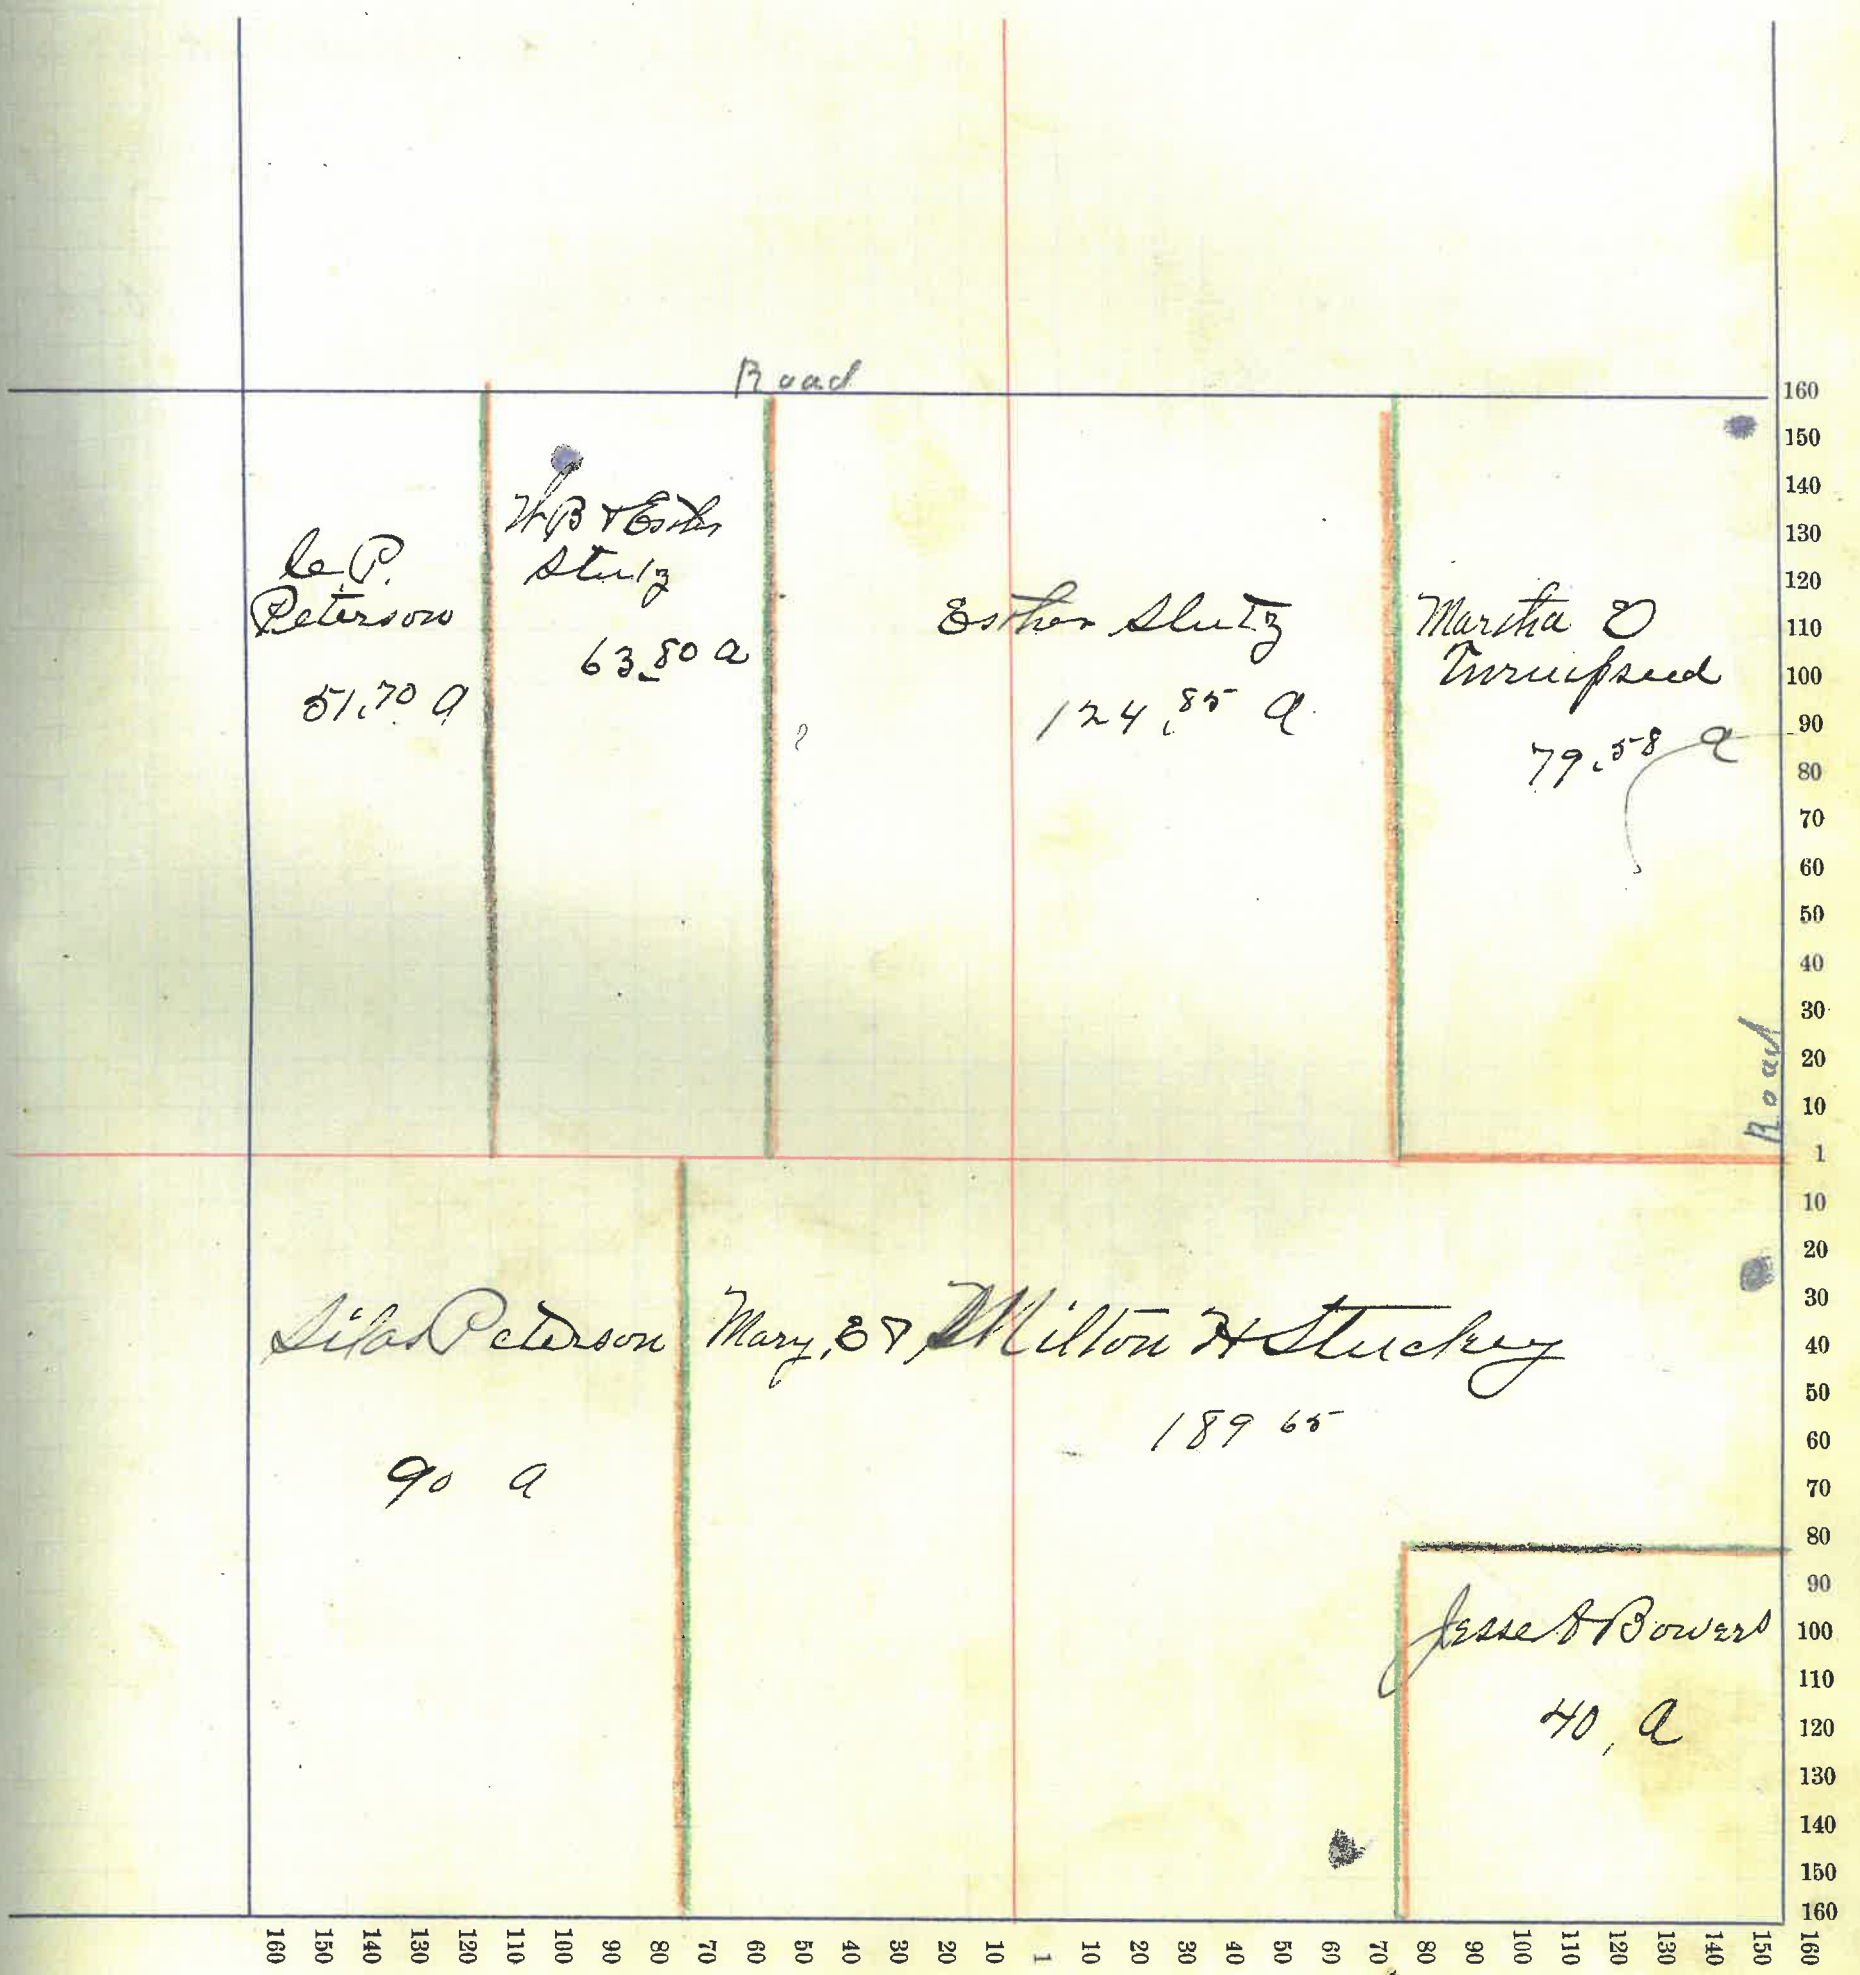 Road
C. P.
Peterson
51.70 a
W B & Esther
Stutz
63.80 a
Esther Slutz
124.85 a.
Martha E
Turnipseed
79.58 a
Road
Silas Peterson
90 a
Mary, E & Milton H Stuckey
189 65
Jesse A Bowers
40, a
160
150
140
130
120
110
100
90
80
70
60
50
40
30
20
10
1
10
20
30
40
50
60
70
80
90
100
110
120
130
140
150
160
160 150 140 130 120 110 100 90 80 70 60 50 40 30 20 10 1 10 20 30 40 50 60 70 80 90 100 110 120 130 140 150 160